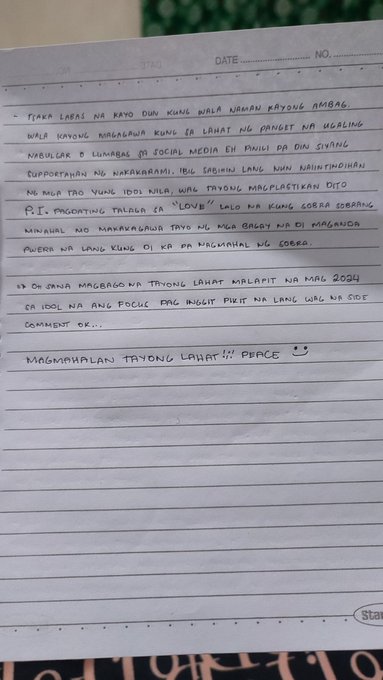 DATE NO.
- TSAKA LABAS NA KAYO DUN KUNG WALA NAMAN KAYONG AMBAG.
WALA KAYONG MAGAGAWA KUNG SA LAHAT NG PANGET NA UGALING
NABULGAR O LUMABAS SA SOCIAL MEDIA EH PINILI PA DIN SIYANG
SUPPORTAHAN NG NAKAKARAMI. IBIG SABIHIN LANG NUN NAIINTINDIHAN
NG MGA TAO YUNG IDOL NILA, WAG TAYONG MAGPLASTIKAN DITO
P.I. PAGDATING TALAGA SA "LOVE" LALO NA KUNG SOBRA SOBRANG
MINAHAL MO MAKAKAGAWA TAYO NG MGA BAGAY NA DI MAGANDA
PWERA NA LANG KUNG DI KA PA NAGMAHAL NG SOBRA.
OH SANA MAGBAGO NA TAYONG LAHAT MALAPIT NA MAG 2024
SA IDOL NA ANG FOCUS PAG INGGIT PIKIT NA LANG WAG NA SIDE
COMMENT OK...
MAGMAHALAN TAYONG LAHAT!!! PEACE
Sta